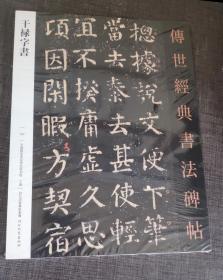 傳世經典書法碑帖
干禄字書
揔據說文便下筆
當去泰去甚使輕
宜不揆庸虚久思
頃因閑暇方契宿